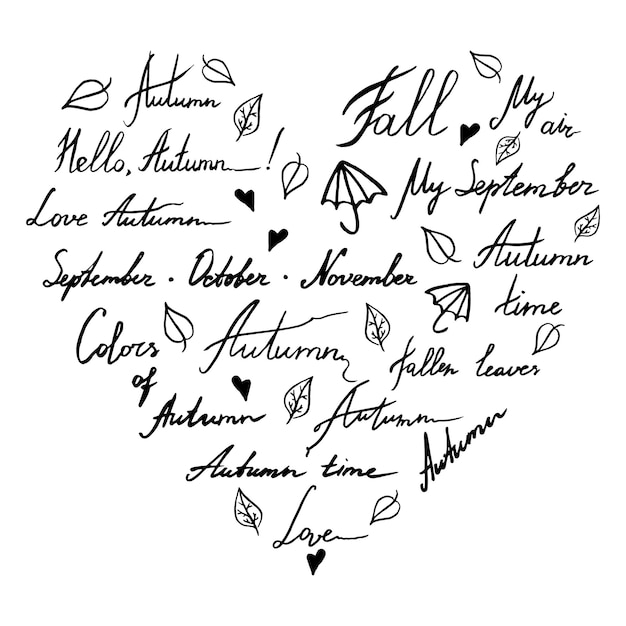 Autumn
Fall
My air
Hello, Autumn!
My September
Love Autumn
Autumn time
September · October · November
Colors of Autumn
Autumn
Fallen leaves
Autumn
Autumn
Autumn time
Love